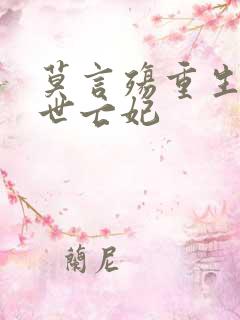 莫言殇重生
世亡妃
蘭尼